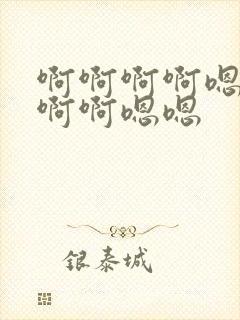 啊啊啊啊嗯
啊啊嗯嗯
银泰城